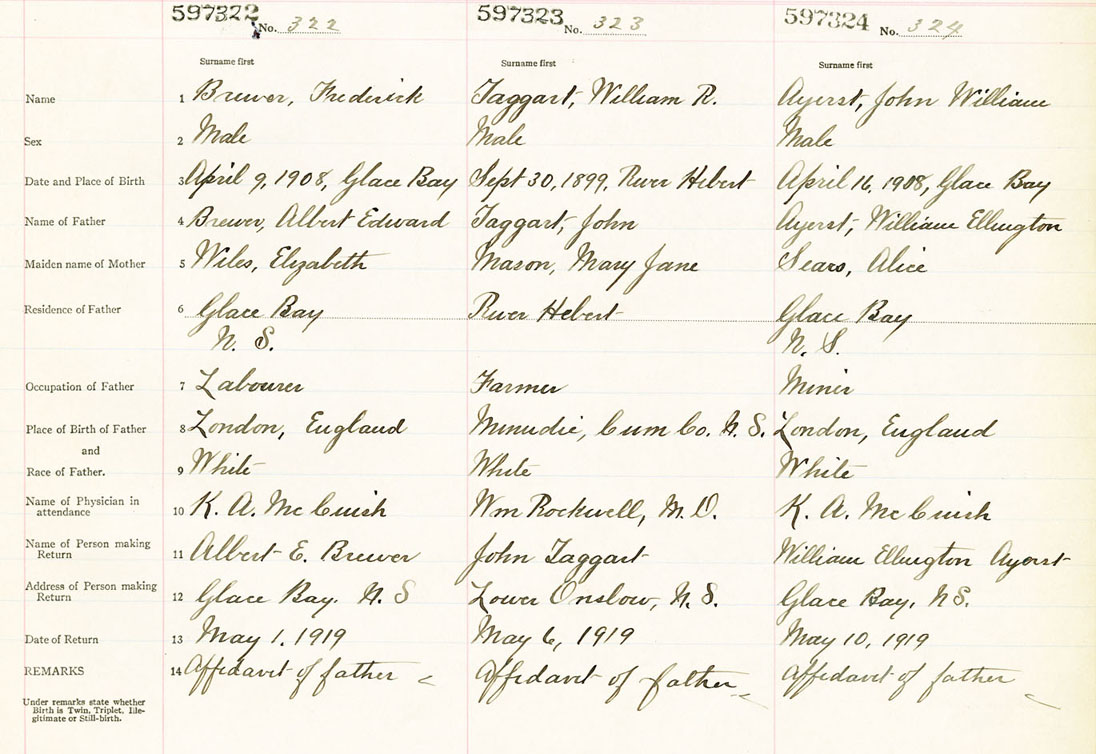 597322 No. 322 597323 No. 323 597324 No. 324
Surname first Surname first Surname first
Name 1 Brewer, Frederick Taggart, William R. Ayerst, John William
Sex 2 Male Male Male
Date and Place of Birth 3 April 9, 1908, Glace Bay Sept 30, 1899, River Hebert April 16, 1908, Glace Bay
Name of Father 4 Brewer, Albert Edward Taggart, John Ayerst, William Ellington
Maiden name of Mother 5 Wiles, Elizabeth Mason, Mary Jane Sears, Alice
Residence of Father 6 Glace Bay River Hebert Glace Bay
N. S. N. S.
Occupation of Father 7 Labourer Farmer Miner
Place of Birth of Father 8 London, England Minudie, Cum Co. N. S. London, England
and
Race of Father. 9 White White White
Name of Physician in
attendance 10 K. A. McCuish Wm Rockwell, M.D. K. A. McCuish
Name of Person making
Return 11 Albert E. Brewer John Taggart William Ellington Ayerst
Address of Person making
Return 12 Glace Bay. N. S Lower Onslow, N. S. Glace Bay, NS.
Date of Return 13 May 1. 1919 May 6, 1919 May 10, 1919
REMARKS 14 Affidavit of father Affidavit of father Affidavit of father
Under remarks state whether
Birth is Twin, Triplet, Ille-
gitimate or Still-birth.